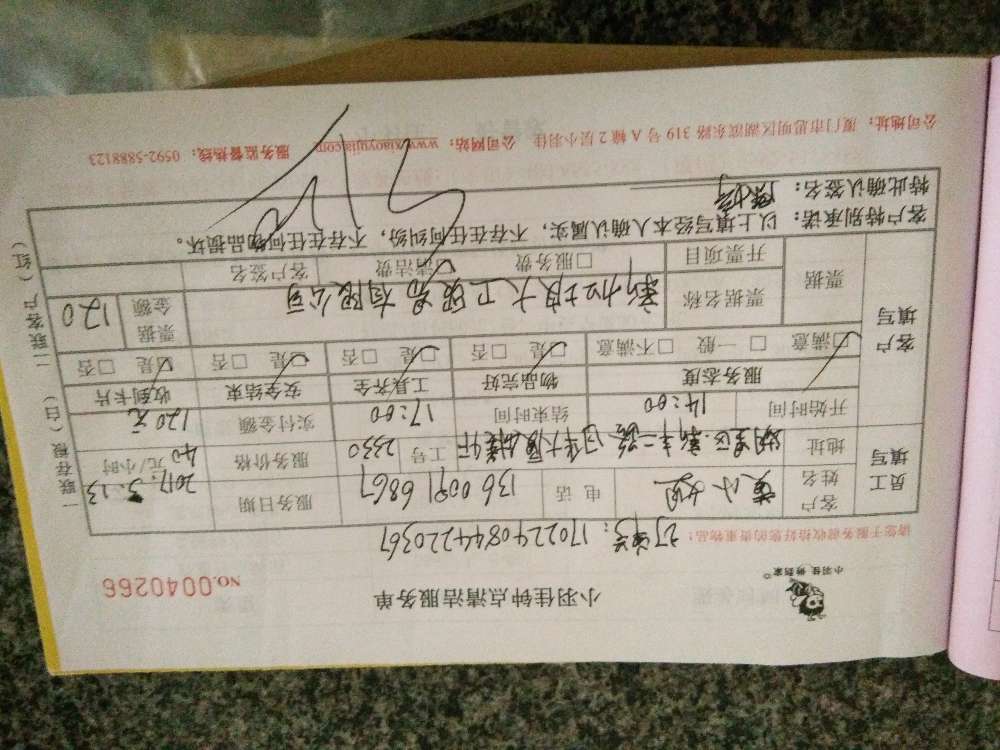 小羽佳 物到家
小羽佳钟点清洁服务单
NO.0040266
请您于服务前收拾好您的贵重物品!
订单号：1702240844220367
员工填写
客户姓名 黄小姐 电话 136 0091 6867 服务日期 2017.3.13
地址 工号 2330 服务价格 40 元/小时
开始时间 14:00 结束时间 17:00 实付金额 120元
客户填写
服务态度 物品完好 工具齐全 安全结束 收到卡片
☑满意 □一般 □不满意 ☑是 □否 ☑是 □否 ☑是 □否 ☑是 □否
票据 票据名称 有限公司 票据金额 120
开票项目 □服务费 ☑清洁费 客户签名
客户特别承诺：以上填写经本人确认属实，不存在任何纠纷，不存在任何物品损坏。
特此确认签名：
公司地址：厦门市思明区湖滨东路 319 号 A 幢 2 层小羽佳 公司网站：www.xiaoyujia.com 服务监督热线：0592-5888123
一联存根（白） 二联客户（红）